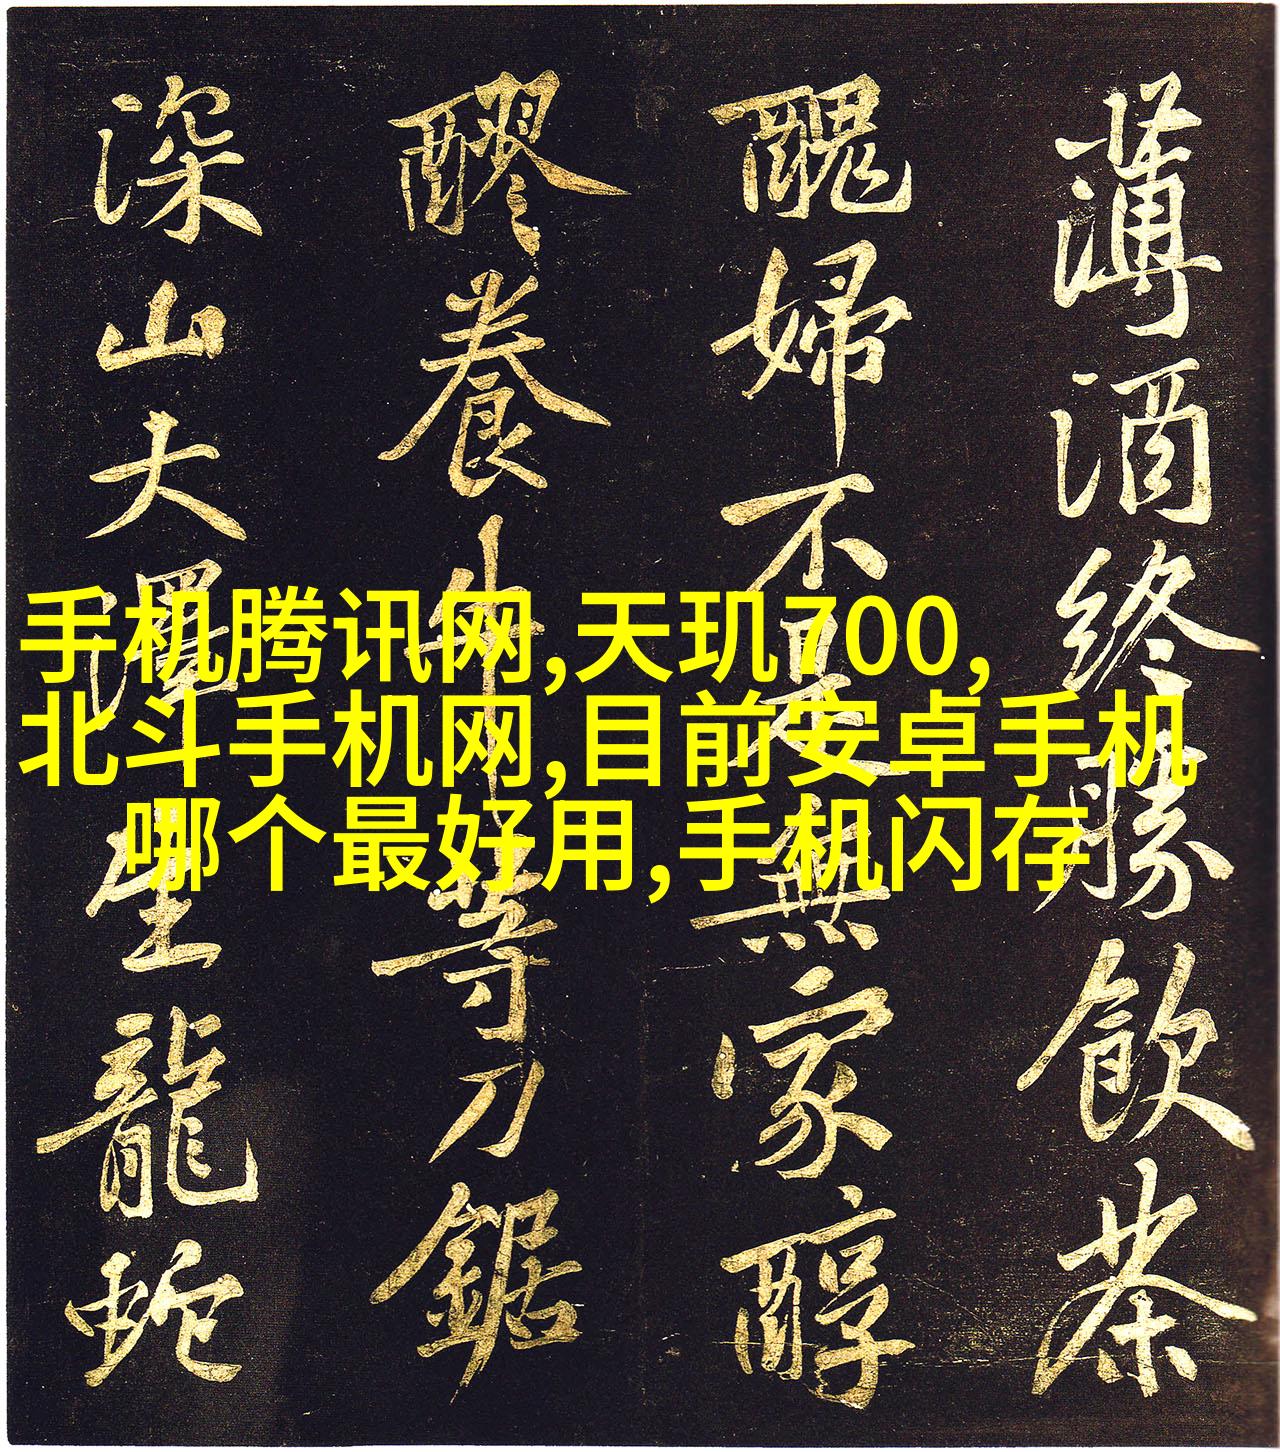 薄酒終勝飲茶
醜婦不是無家醇
醪養牛等刀鋸
深山大澤生龍蛇
手机腾讯网,天玑700,
北斗手机网,目前安卓手机
哪个最好用,手机闪存